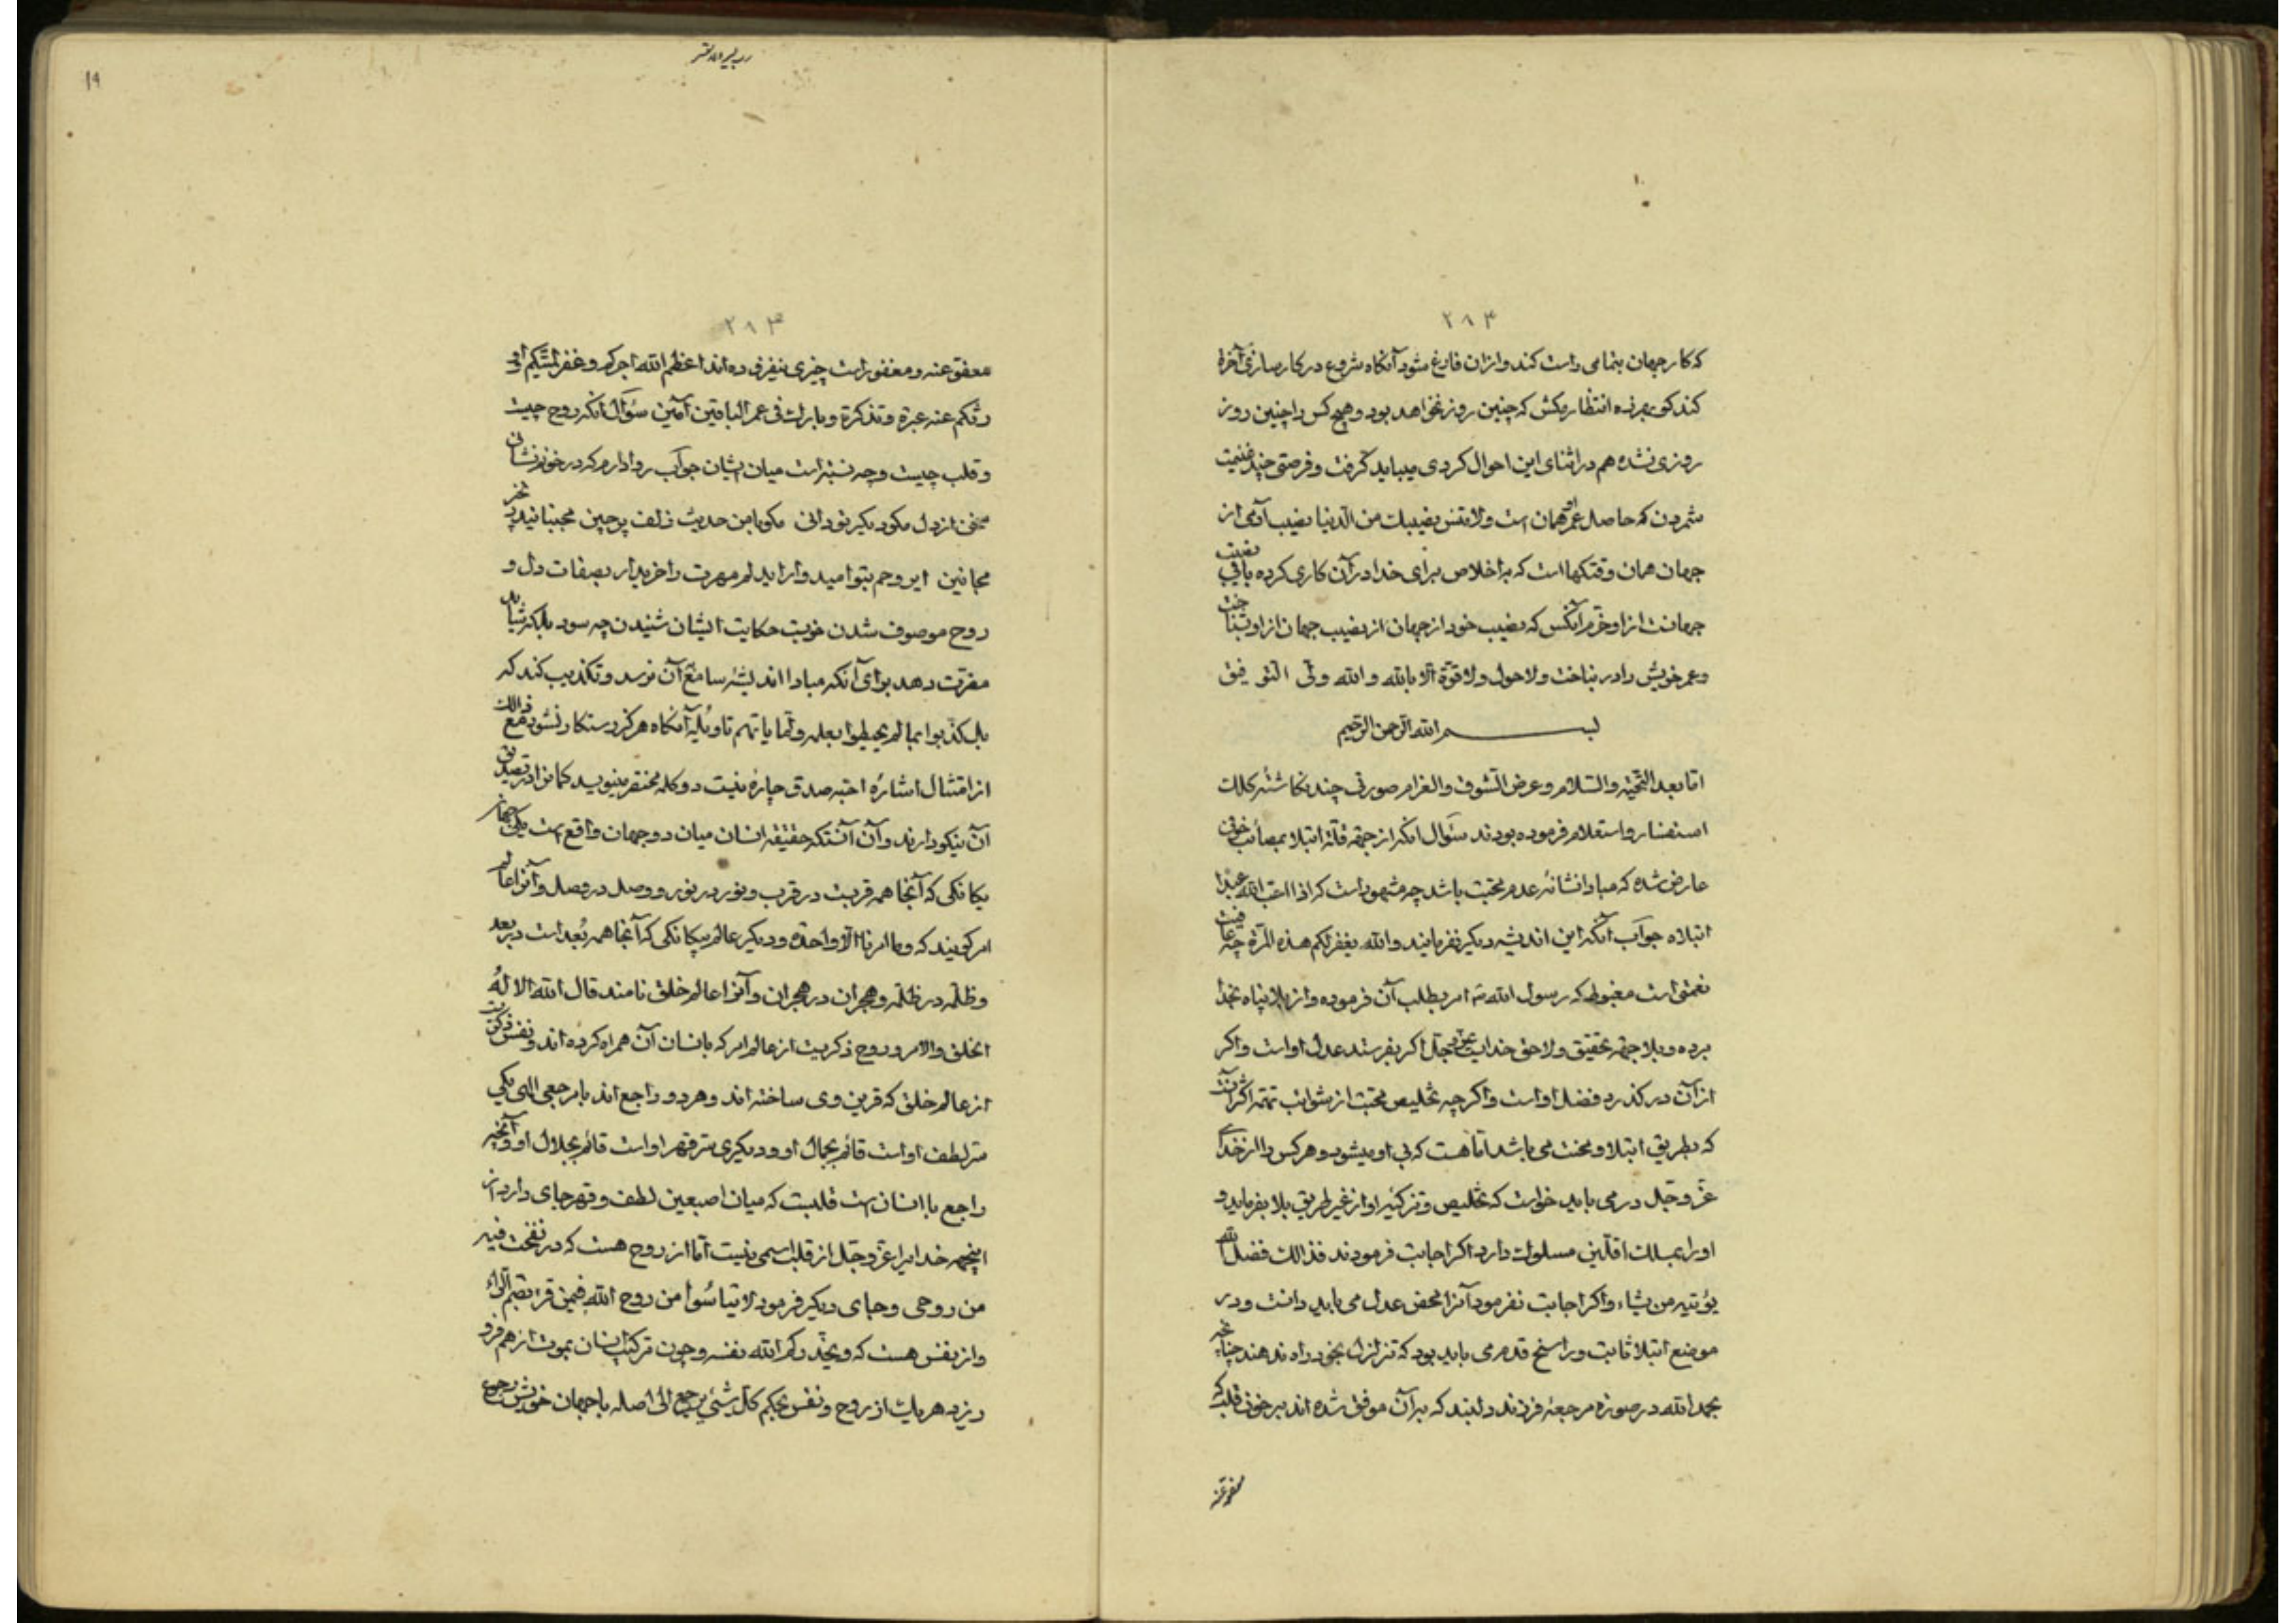 ۲۸۴
که کار جهان بتمامی راست کند و ازان فارغ شود آنگاه شروع در کارسازی آخرة
کند کو برنده انتظار مکش که چنین روز نخواهد بود و هیچ کس را چنین روز
روزی نشده هم در اثنای این احوال کردی میباید گرفت و فرصتی چند غنیمت
شمردن که حاصل عمر او همان است ولا تنس نصیبك من الدنیا نصیب آدمی از
جهان همان وقتکها است که باخلاص برای خدا در آن کاری کرده باقی نصیب
جهانست از او خرم آنکس که نصیب خود از جهان از نصیب جهان از او بشناخت
و عمر خویش را در نباخت ولا حول ولا قوة الا بالله والله ولی التوفیق
بسم الله الرحمن الرحیم
اما بعد التحیة والسلام و عرض التشوق والغرام صورتی چند نگاشته کلك
استفسار و استعلام فرموده بودند سؤال آنکه از جهة قلة ابتلا بمصائب خوفی
عارض شده که مبادا نشانه عدم محبت باشد چه مشهور است که اذا احب الله عبدا
ابتلاه جواب آنکه این اندیشه دیگر نفرمایند والله یغفر لکم هذه المرة چه عافیت
نعمتی است مغبوط که رسول الله امر بطلب آن فرموده و از بلا پناه بخدا
برده و بلا جهة تحقیق ولا حق خدایست عز و جل اگر بفرستد عدل او است و اگر
از آن در گذرد فضل او است و اگر چه تخلیص محبت از شوائب تتمه اکثر آنست
که بطریق ابتلا و محنت می باشد اما هست که بی او میشود و هر کس را از خدای
عز و جل در می باید خواست که تخلیص و تزکیه او از غیر طریق بلا بفرماید و
او را بمسلك اقلین مسلوك دارد اگر اجابت فرمودند فذالك فضل الله
یؤتیه من یشاء و اگر اجابت نفرمود آنرا محض عدل می باید دانست و در
موضع ابتلا ثابت و راسخ قدم می باید بود که تزلزل بخود راه ندهند چنانچه
بحمد الله در صورة مرجعه فرزند دلبند که بر آن موفق شده اند بر خوفی قلب که
معفو عنه
۲۸۳
معفو عنه و مغفور است چیزی نیفزوده اند اعظم الله اجرکم و غفر لمیتکم و
رزقکم عنه عبرة و تذکرة و بارك فی عمر الباقین آمین سؤال آنکه روح چیست
و قلب چیست و چه نسبت است میان ایشان جواب روا دارم که در خور نشانی
سخن از دل مگو دیگر تو دانی مگو با من حدیث زلف پرچین مجنبانید زنجیر
مجانین ای روحم بتو امید وار ای دلم مهرت را خریدار بصفات دل و
روح موصوف شدن خوبست حکایت ایشان شنیدن چه سود بلکه شاید
مضرت دهد برای آنکه مبادا اندیشه سامع آن نرسد و تکذیب کند که
بل کذبوا بما لم یحیطوا بعلمه ولما یاتهم تاویله آنگاه هرگز رستگار نشود مع ذالك
از امتثال اشاره احبه صدق چاره نیست دو کلمه مختصر مینویسد کمانرا در تصدیق
آن نیکو دارند و آن آنستکه حقیقة انسان میان دو جهان واقع است یکی جهان
یگانگی که آنجا همه قربست در قرب و نور در نور و وصل در وصل و آنرا عالم
امر گویند که وما امرنا الا واحدة و دیگر عالم بیگانگی که آنجا همه بعد است در بعد
و ظلمه در ظلمه و هجران در هجران و آنرا عالم خلق نامند قال الله الا له
الخلق والامر و روح ذکریست از عالم امر که با انسان آن همراه کرده اند و نفس ذکریت
از عالم خلق که قرین وی ساخته اند و هر دو راجع اند با مرجعی الهی یکی
سر لطف او است قائم بجمال او و دیگری سر قهر او است قائم بجلال او و آنچه
راجع با انسان است قلبست که میان اصبعین لطف و قهر جای دارد از
اینجهه خدایرا عز و جل از قلب اسمی نیست اما از روح هست که در نفخت فیه
من روحی و جای دیگر فرمود لا تیأسوا من روح الله فیمن قرا بضم الراء
و از نفس هست که ویحذرکم الله نفسه و چون ترکیب انسان بموت از هم فرو
ریزد هر یك از روح و نفس بحکم کل شیئ یرجع الی اصله با جهان خویش رجوع